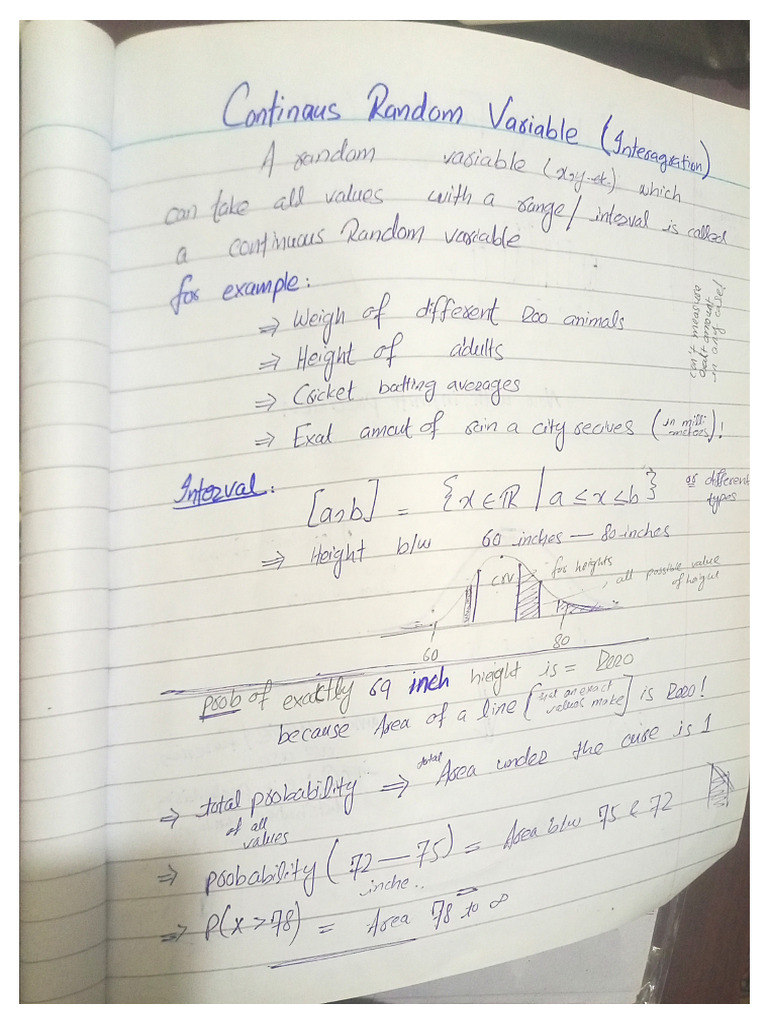 Continaus Random Variable (Interagration)
A random variable (x,y..etc.) which
can take all values with a range/ interval is called
a continuous Random variable
for example:
⇒ Weigh of different Zoo animals
⇒ Height of adults
⇒ Cricket batting averages
⇒ Exal amout of rain a city recives (in milli meters)!
can't measure
in any case!
Interval: [a,b] = {x ∈ R | a ≤ x ≤ b} as different types
⇒ Height b/w 60 inches — 80 inches
CRV
for heights
all possible value
of height
60
80
prob of exactly 69 inch height is = Zero
because Area of a line [ an exact values make] is Zero!
⇒ total probability ⇒ total Area under the curve is 1
of all
values
⇒ probability (72 — 75) = Area b/w 75 & 72
inche..
⇒ P(x>78) = Area 78 to ∞